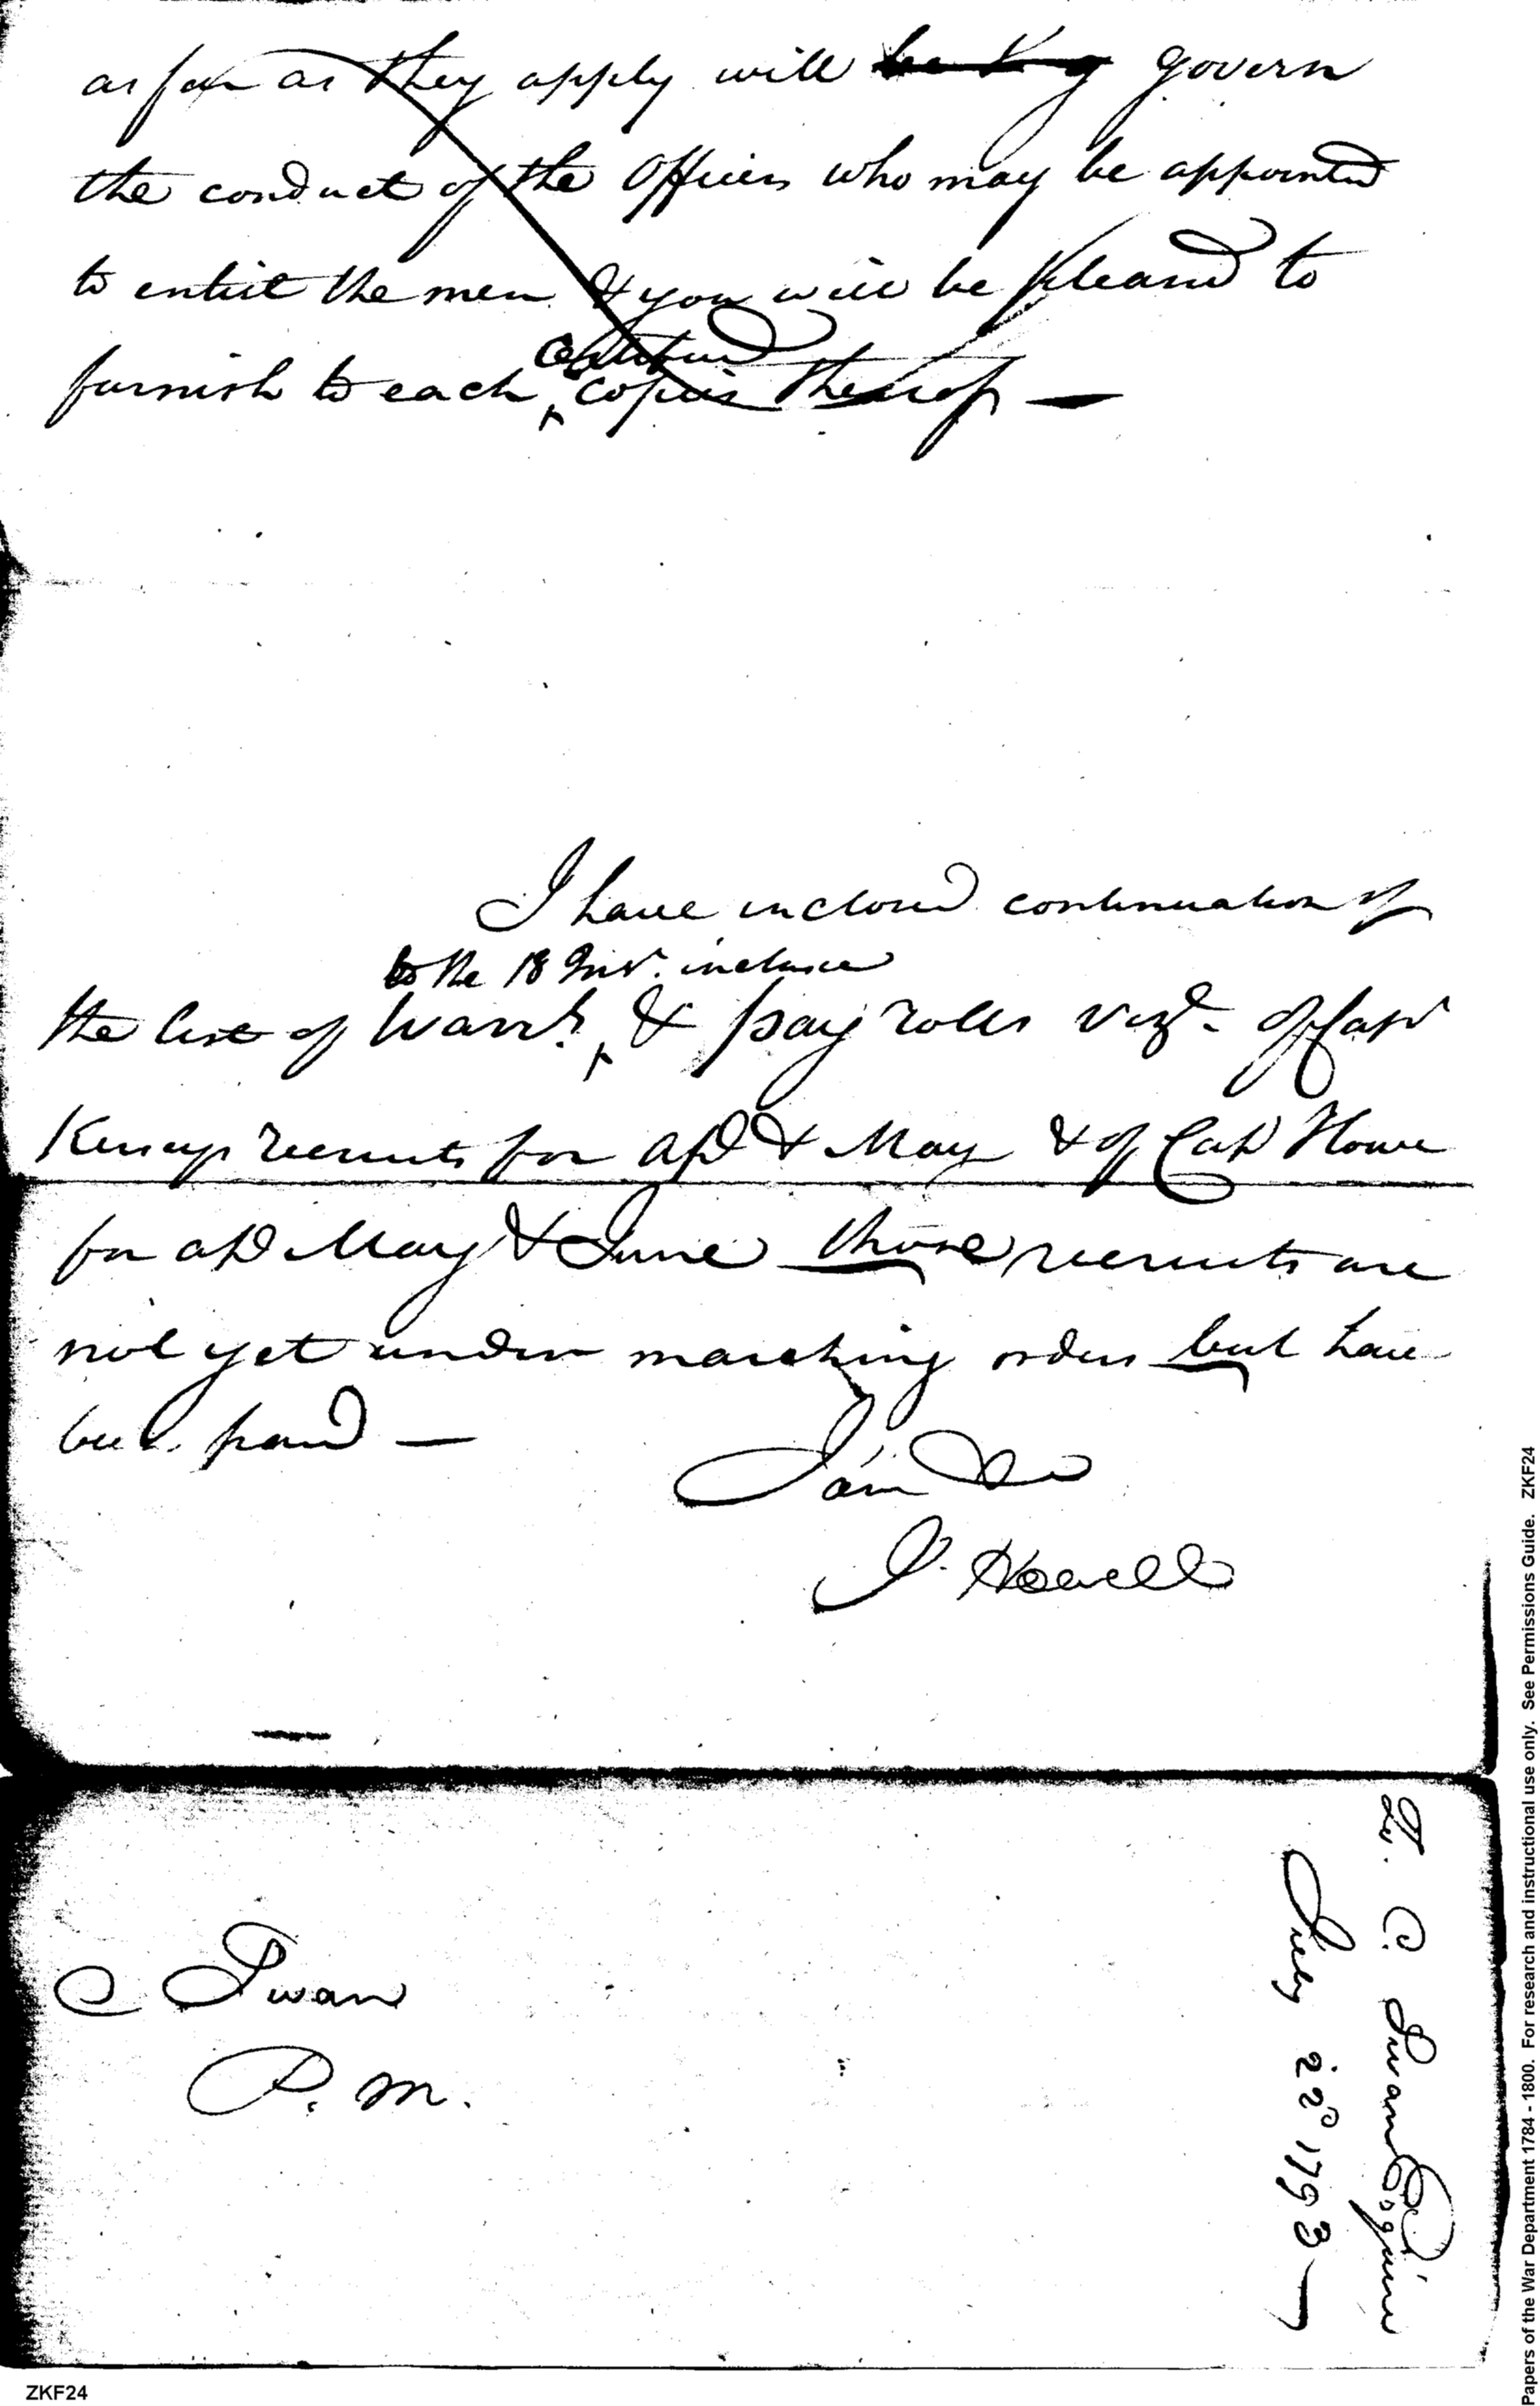 as far as they apply will be govern
the conduct of the Officers who may be appointed
to enlist the men & you will be pleased to
certified
furnish to each copies thereof —
I have inclosed continuation of
to the 18 Inst. inclusive
the list of Warrts. & pay rolls vizt. of Capt
recruits for Apl & May & of Cap Howe
for apl May & June those recruits are
not yet under marching orders but have
been paid —
I am &c
J. Howell
C Swan
P. M.
To. C. Swan Esquire
July 22d 1793 —
ZKF24
Papers of the War Department 1784 - 1800. For research and instructional use only. See Permissions Guide. ZKF24